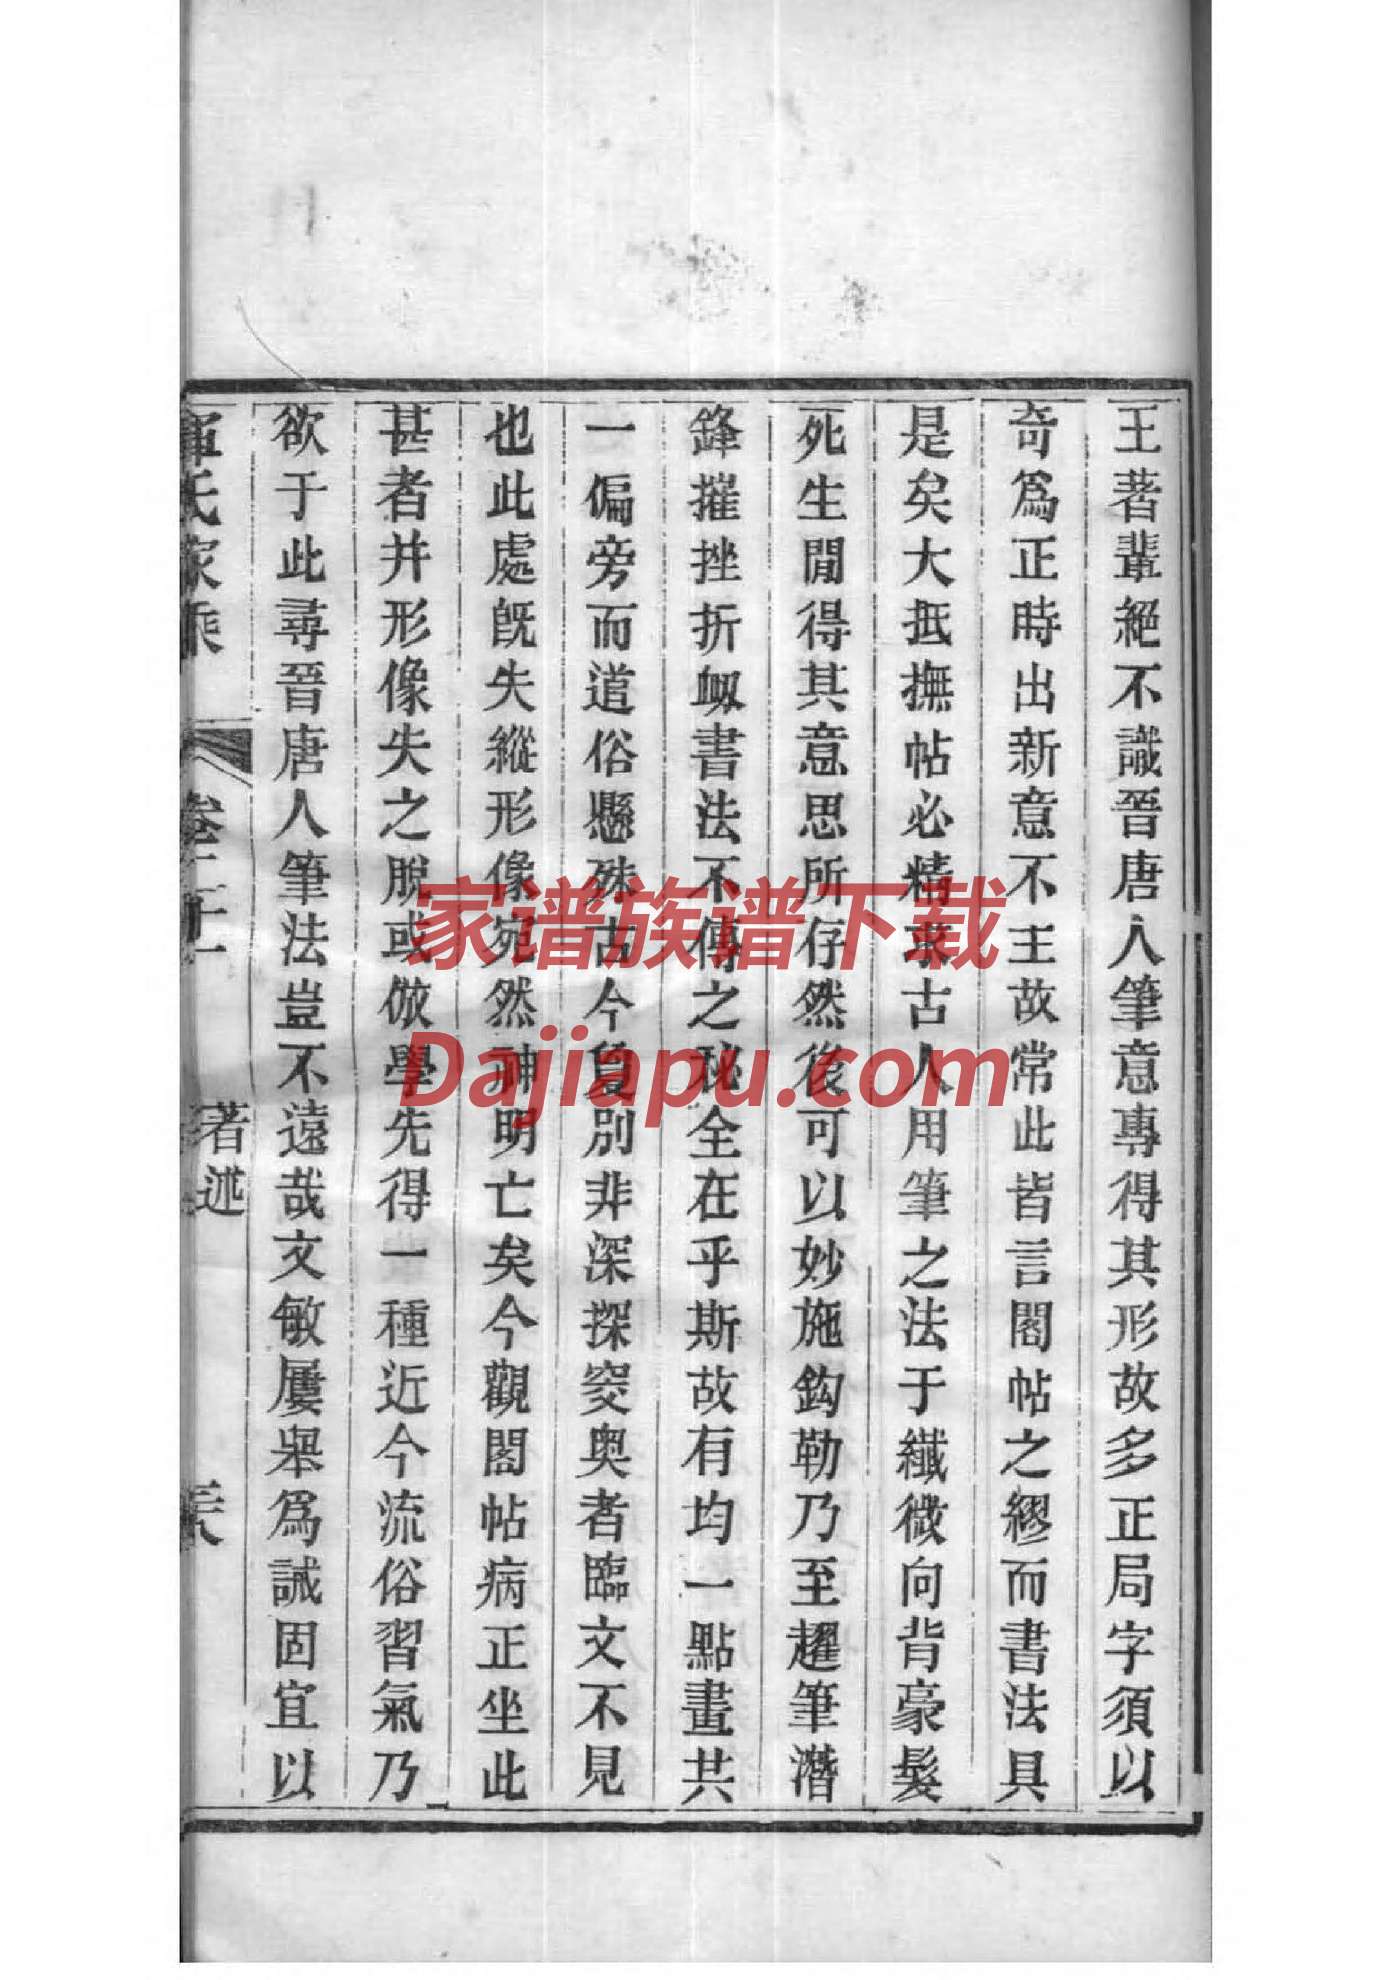 王著輩絕不識晉唐人筆意專得其形故多正局字須以
奇爲正時出新意不主故常此皆言閣帖之繆而書法具
是矣大抵撫帖必精求古人用筆之法于纖微向背豪髮
死生閒得其意思所存然後可以妙施鈎勒乃至趯筆潛
鋒摧挫折衂書法不傳之秘全在乎斯故有均一點畫共
一偏旁而道俗懸殊古今敻別非深探窔奥者臨文不見
也此處旣失縱形像宛然神明亡矣今觀閣帖病正坐此
甚者并形像失之脫或倣學先得一種近今流俗習氣乃
欲于此尋晉唐人筆法豈不遠哉文敏屢舉爲誡固宜以
氏家乘
著述
家谱族谱下载
Dajiapu.com